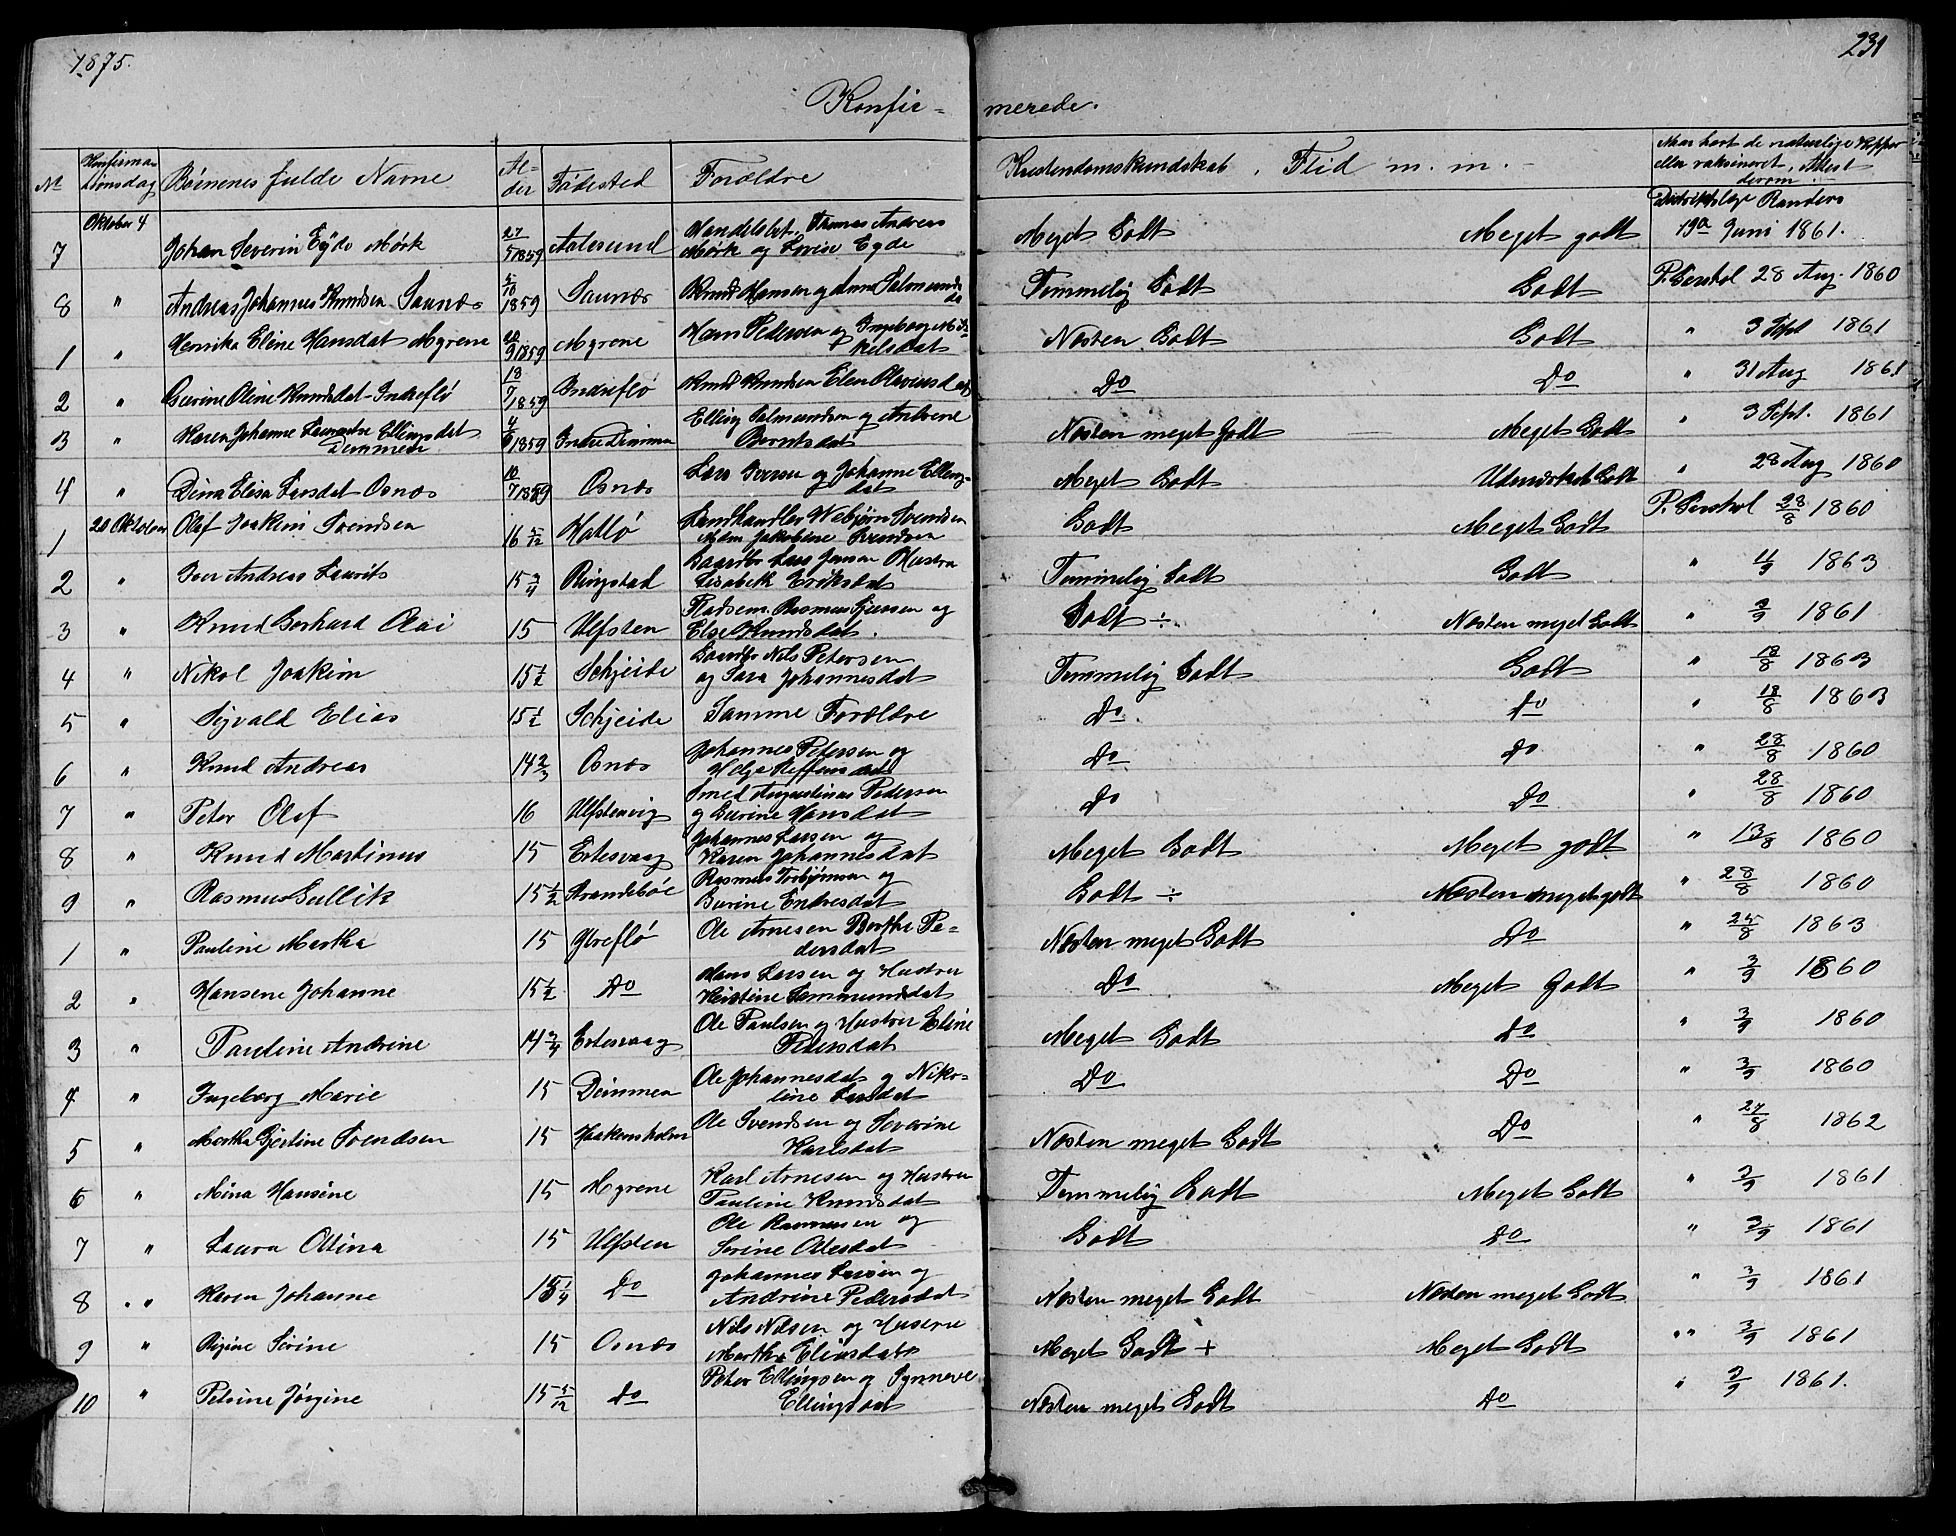 1875.
231
Konfir- merede.
No Konfirma- tionsdag Børnenes fulde Navne Al- der Fødested Forældre Kristendomskundskab. Flid m. m. Naar havt de naturlige Kopper eller vaksineret, Attest derom
7 Oktober 4 Johan Severin Eyde Mørk 27/5 1859 Aalesund Handelsbet. Thomas Andreas Mørk og Lovise Eyde Meget Godt Meget godt Distriktslæge Randers 19de Juni 1861.
8 " Andreas Johannes Knudsen Saunæs 5/10 1859 Saunæs Knud Hansen og Anna Salmunds da Temmelig Godt Godt P. Gershol 28 Aug. 1860
1 " Henrika Eline Hansdat Myrene 20/9 1859 Myrene Hans Pedersen og Ingeborg Mi- kelsdat Næsten Godt Godt " 3 Sept 1861
2 " Gurine Oline Knudsdat Indreflø 18/7 1859 Indreflø Knud Knudsen Elen Oliviusdat Do Do " 31 Aug 1861
3 " Karen Johanne Lauentse Ellingsdat Dimmen 4/6 1859 Indre Dimmen Elling Salmundsen og Andrene Berntsdat Næsten meget Godt Meget Godt " 3 Sept. 1861
4 " Dina Elisa Larsdat Osnæs 10/7 1859 Osnæs Lars Iversen og Johanne Ellings- dat Meget Godt Udmærket Godt " 28 Aug 1860
1 20 Oktober Olaf Joakim Svendsen 16 5/12 Hatlø Landhandler Webjørn Svendsen Mdm Jakobine Svendsen Godt Meget Godt P. Gershol 28/8 1860
2 " Iver Andreas Laurits 15 3/4 Ringstad Gaardbr Lars Jensen Hustru Lisabeth Eriksdat Temmelig Godt Godt " 4/9 1863
3 " Knud Gerhard Olai 15 Ulfsten Pladsem. Rasmus Gjersen og Else Knudsdat. Godt ÷ Næsten meget Godt " 3/9 1861
4 " Nikol Joakim 15 1/2 Schjeide Gaardbr Nils Petersen og Sara Johannesdat Temmelig Godt Godt " 18/8 1863
5 " Sigvald Elias 15 1/2 Schjeide Samme Forældre Do Do " 18/8 1863
6 " Knud Andreas 14 2/3 Osnæs Johannes Petersen og Helga Steffensdat Do Do " 28/8 1860
7 " Peter Olaf 16 Ulfstenvig Smed Augustinus Pedersen og Gurine Hansdat Do Do " 28/8 1860
8 " Knud Martinus 15 Ertesvaag Johannes Larsen og Karen Johannesdat Meget Godt Meget godt " 13/8 1860
9 " Rasmus Gullik 15 1/2 Strandebøe Rasmus Torbjørnsen og Gurine Endresdat Godt ÷ Næsten meget godt " 28/8 1860
1 " Pauline Martha 15 Ytreflø Ole Arnesen Berthe Pe- dersdat Næsten meget Godt Do " 25/8 1863
2 " Hansene Johanne 15 1/2 Do Hans Larsen og Hustru Kirstine Sammundsdat Do Meget Godt " 3/9 1860
3 " Pauline Andrine 14 3/4 Ertesvaag Ole Paulsen og Hustru Eline Petersdat Meget Godt Do " 3/9 1860
4 " Ingeborg Marie 15 Dimmen Ole Johannesdat og Niko- line Larsdat Do Do " 3/9 1860
5 " Martha Gjertine Svendsen 15 Haakonsholm Ole Svendsen og Severine Karlsdat Næsten meget Godt Do " 27/8 1862
6 " Mina Hansine 15 Myrene Karl Arnesen og Hustru Pauline Knudsdat Temmelig Godt Meget Godt " 3/9 1861
7 " Laura Olina 15 Ulfsten Ole Rasmusen og Serine Olesdat Godt Do " 3/9 1861
8 " " Karen Johanne 15 1/4 Do Johannes Larsen og Andrine Pedersdat Næsten meget Godt Næsten meget Godt " 3/9 1861
9 " Regine Serine 15 Osnæs Nils Nilsen og Hustru Martha Eliasdat Meget Godt + Meget Godt " " 3/9 1861
10 " Petrine Jørgine 15 5/12 Do Peter Ellingsen og Synneve Ellingsdat Næsten meget Godt Do " 3/9 1861.